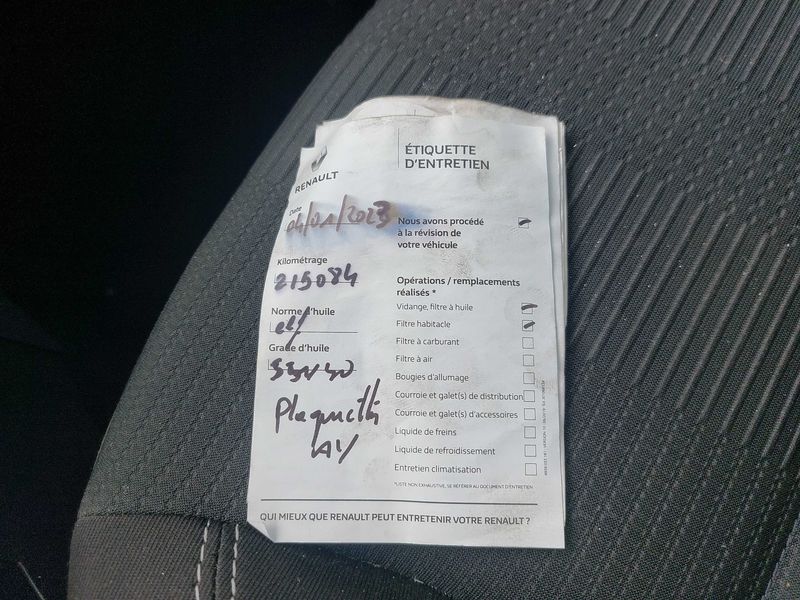 RENAULT
ÉTIQUETTE
D'ENTRETIEN
Date
04/01/2023
Nous avons procédé
à la révision de
votre véhicule
Kilométrage
215084
Norme d'huile
elf
Grade d'huile
Plaquettes
AV
Opérations / remplacements
réalisés *
Vidange, filtre à huile
Filtre habitacle
Filtre à carburant
Filtre à air
Bougies d'allumage
Courroie et galet(s) de distribution
Courroie et galet(s) d'accessoires
Liquide de freins
Liquide de refroidissement
Entretien climatisation
*LISTE NON EXHAUSTIVE, SE RÉFÉRER AU DOCUMENT D'ENTRETIEN
QUI MIEUX QUE RENAULT PEUT ENTRETENIR VOTRE RENAULT ?